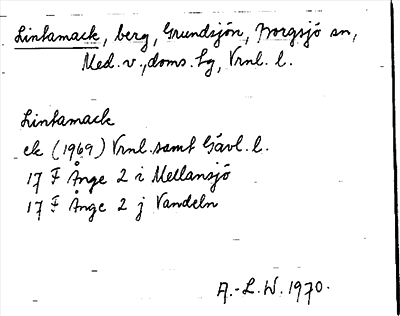 Lintamack, berg, Grundsjön, Borgsjö sn,
Med. v., doms. Lg, Vrnl. l.
Lintamack
ek (1969) Vrnl. samt Gävl. l.
17 F Ånge 2 i Mellansjö
17 F Ånge 2 j Vandeln
A.-L. W. 1970.